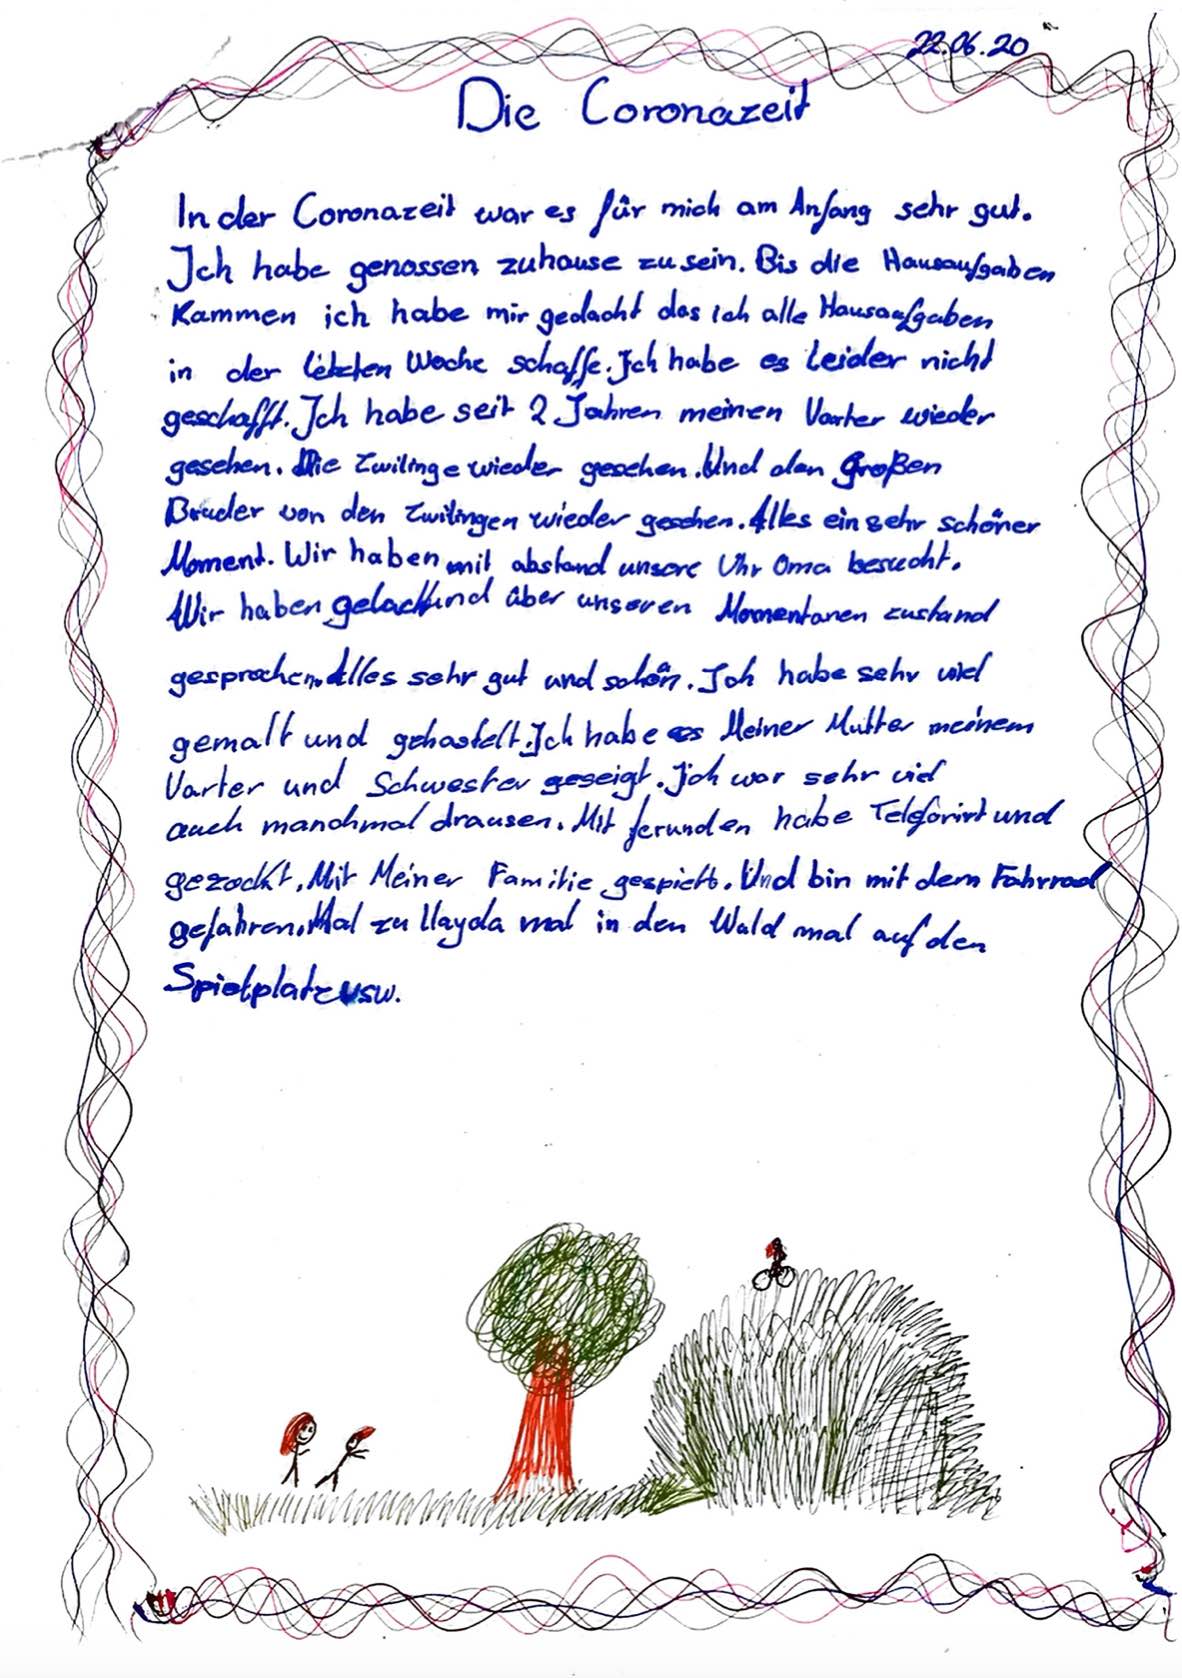 22.06.20
Die Coronazeit
In der Coronazeit war es für mich am Anfang sehr gut.
Ich habe genossen zuhause zu sein. Bis die Hausaufgaben
Kammen ich habe mir gedacht das ich alle Hausaufgaben
in der letzten Woche schaffe. Ich habe es leider nicht
geschafft. Ich habe seit 2 Jahren meinen Varter wieder
gesehen. Die Zwilinge wieder gesehen. Und den Großen
Bruder von den Zwilingen wieder gesehen. Alles ein sehr schöner
Moment. Wir haben mit abstand unsere Uhr Oma besucht.
Wir haben gelacht und über unseren Momentanen zustand
gesprochen. Alles sehr gut und schön. Ich habe sehr viel
gemalt und gebastelt. Ich habe es Meiner Mutter meinem
Varter und Schwester geseigt. Ich war sehr viel
auch manchmal drausen. Mit ferunden habe Telefonirt und
gezockt. Mit Meiner Familie gespielt. Und bin mit dem Fahrrad
gefahren. Mal zu Ilayda mal in den Wald mal auf den
Spielplatz usw.